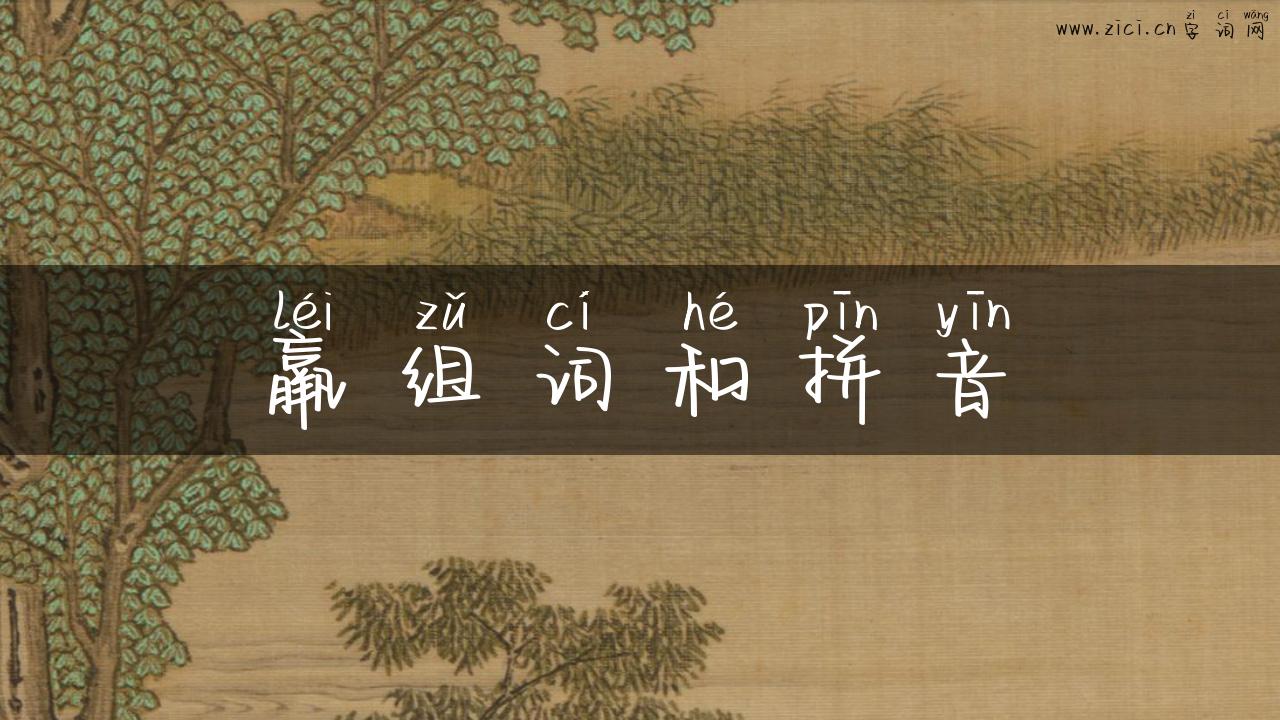 zì cí wǎng
www.zici.cn字词网
léi zǔ cí hé pīn yīn
羸组词和拼音